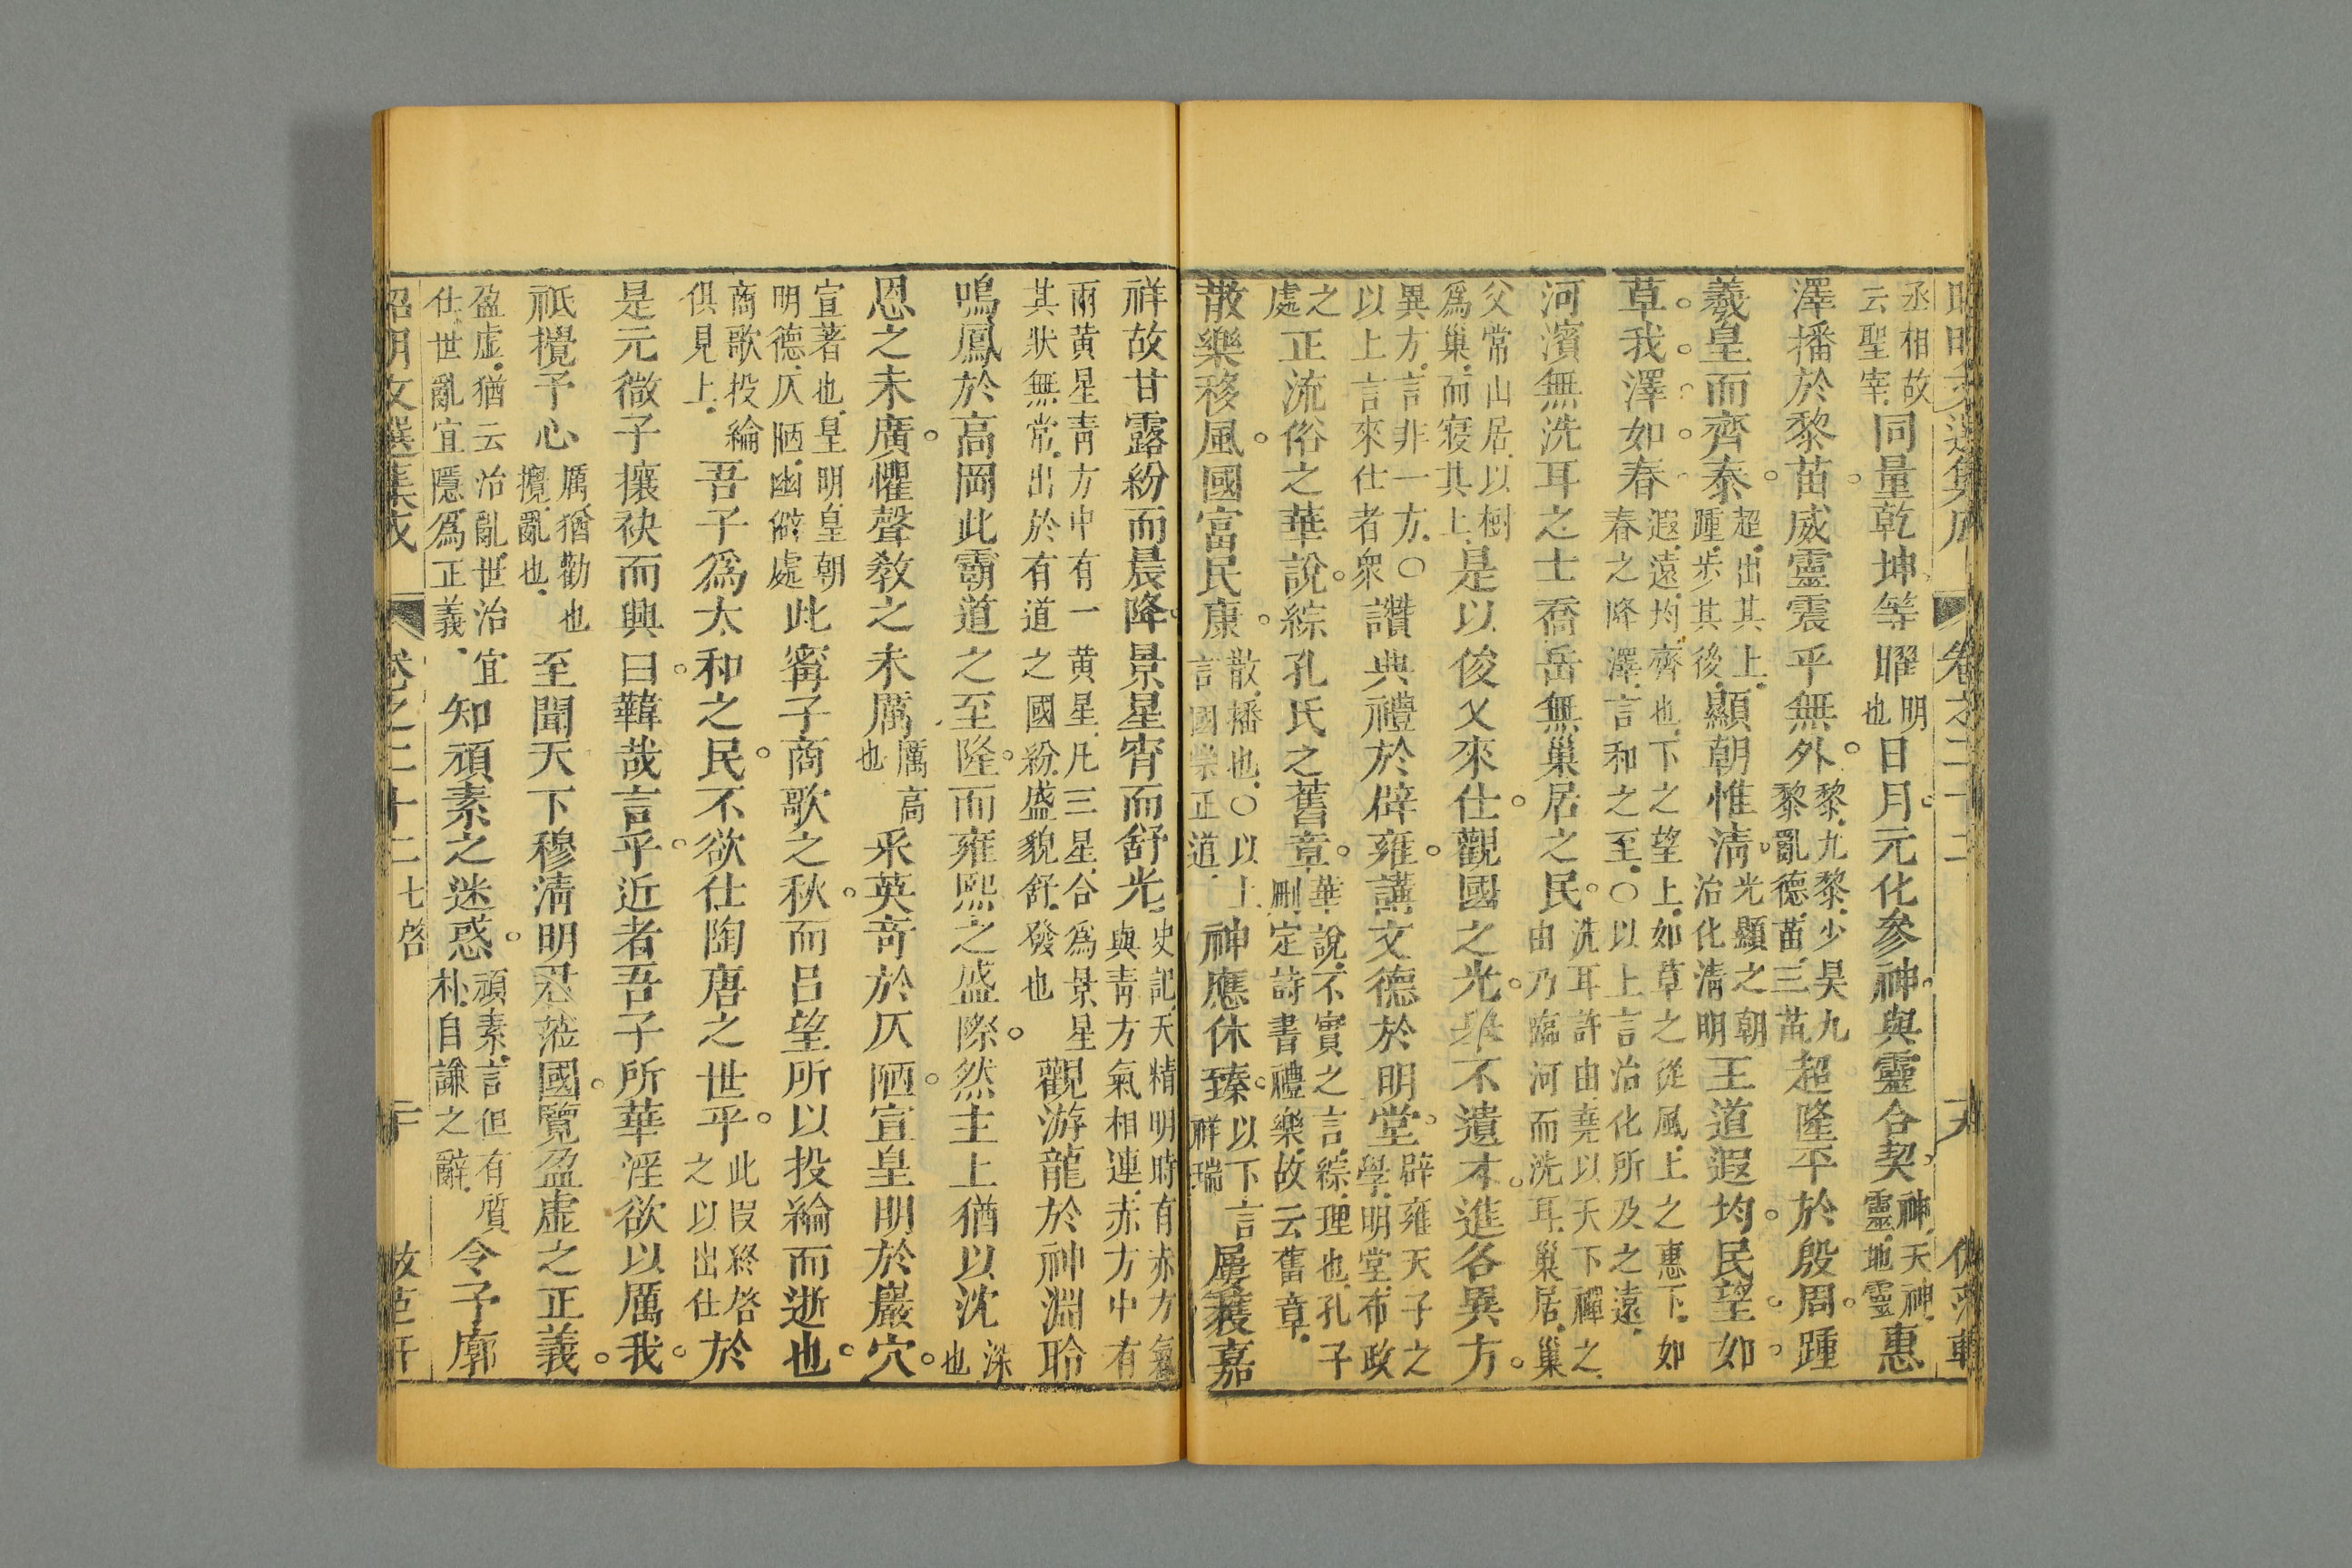 丞相故云聖宰同量乾坤等曜明也日月元化參神與靈合契神天神靈地靈惠
澤播於黎苗威靈震乎無外黎九黎少昊九黎亂德苗三苗超隆平於殷周踵
羲皇而齊泰超出其上踵步其後顯朝惟清光顯之朝治化清明王道遐均民望如
草我澤如春遐遠均齊也下之望上如草之從風上之惠下如春之降澤言和之至○以上言治化所及之遠
河濱無洗耳之士喬岳無巢居之民洗耳許由堯以天下禪之由乃臨河而洗耳巢居巢
父常山居以樹爲巢而寢其上是以俊乂來仕觀國之光舉不遺才進各異方
異方言非一方○以上言來仕者衆讚典禮於辟雍講文德於明堂辟雍天子之學明堂布政
之處正流俗之華說綜孔氏之舊章華說不實之言綜理也孔子刪定詩書禮樂故云舊章
散樂移風國富民康散播也○以上言國崇正道神應休臻以下言祥瑞屢獲嘉
祥故甘露紛而晨降景星宵而舒光史記天精明時有赤方氣與青方氣相連赤方中有
兩黃星青方中有一黃星凡三星合爲景星其狀無常出於有道之國紛盛貌舒發也觀游龍於神淵聆
鳴鳳於高岡此霸道之至隆而雍熙之盛際然主上猶以沈深也
恩之未廣懼聲教之未厲厲高也采英奇於仄陋宣皇明於巖穴
宣著也皇明皇朝明德仄陋幽僻處此甯子商歌之秋而呂望所以投綸而逝也
商歌投綸俱見上吾子爲太和之民不欲仕陶唐之世乎此段終啓之以出仕於
是元微子攘袂而興曰韡哉言乎近者吾子所華淫欲以厲我
祇攪予心厲猶勸也攪亂也至聞天下穆清明君蒞國覽盈虛之正義
盈虛猶云治亂世治宜仕世亂宜隱爲正義知頑素之迷惑頑素言但有質朴自謙之辭令予廓
昭明文選集成 卷之二十二七啓